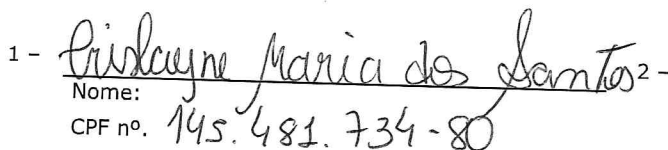 1 - Crislayne Maria dos Santos 2 -
Nome:
CPF nº. 145.481.734-80